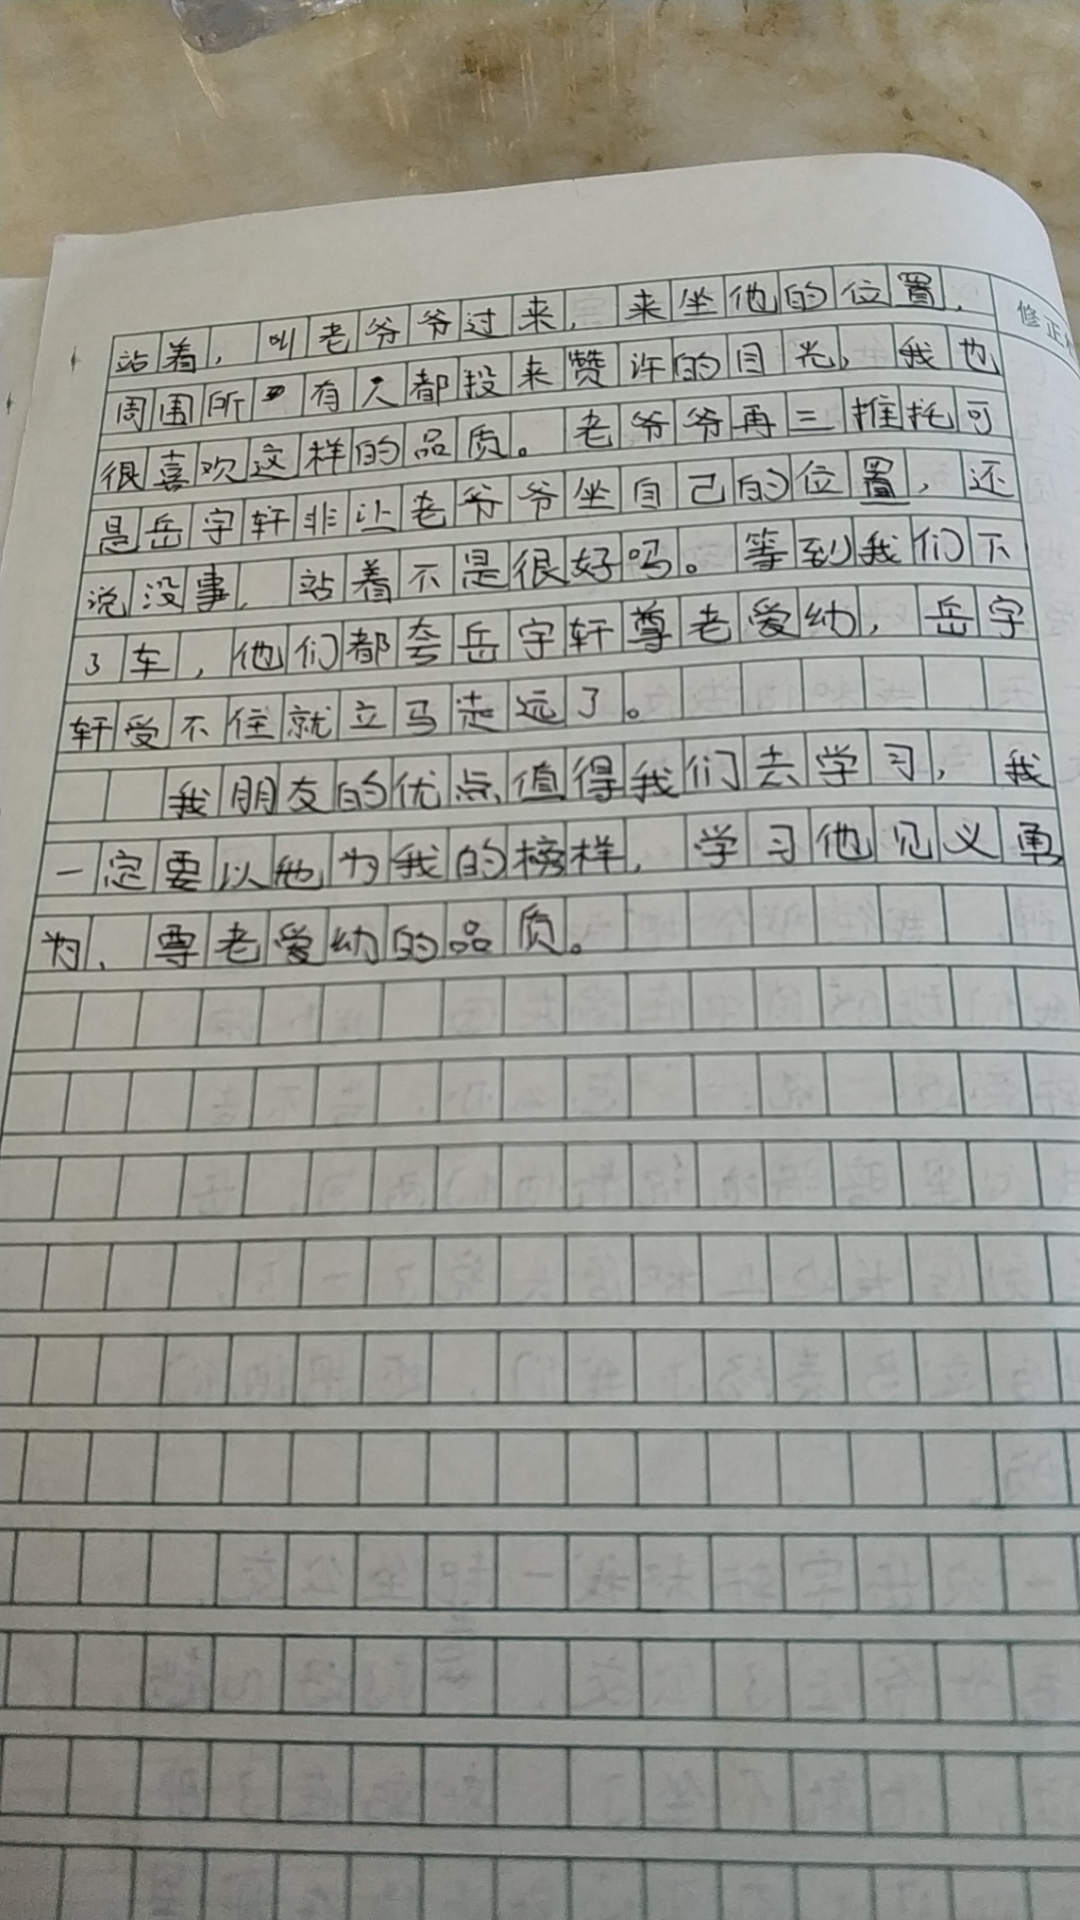 站着，叫老爷爷过来，来坐他的位置，
周围所有人都投来赞许的目光，我也
很喜欢这样的品质。老爷爷再三推托可
是岳宇轩非让老爷爷坐自己的位置，还
说没事，站着不是很好吗。等到我们下
了车，他们都夸岳宇轩尊老爱幼，岳宇
轩受不住就立马走远了。
我朋友的优点值得我们去学习，我
一定要以他为我的榜样，学习他见义勇
为、尊老爱幼的品质。
修正